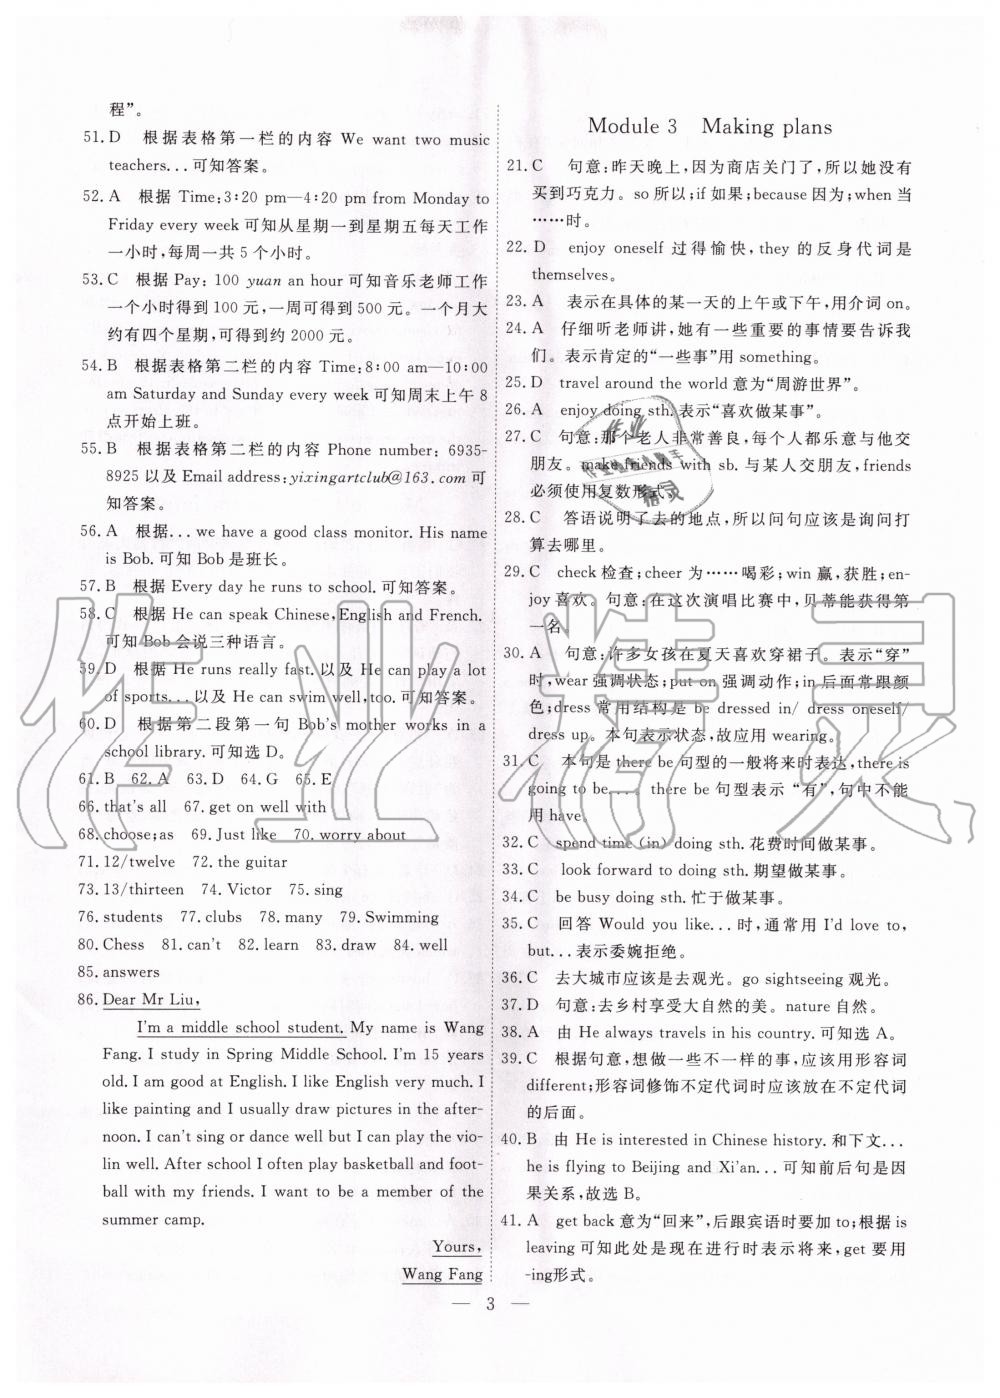 程”。
51. D　根据表格第一栏的内容 We want two music
teachers... 可知答案。
52. A　根据 Time:3:20 pm—4:20 pm from Monday to
Friday every week 可知从星期一到星期五每天工作
一小时,每周一共 5 个小时。
53. C　根据 Pay: 100 yuan an hour 可知音乐老师工作
一个小时得到 100 元,一周可得到 500 元。一个月大
约有四个星期,可得到约 2000 元。
54. B　根据表格第二栏的内容 Time:8:00 am—10:00
am Saturday and Sunday every week 可知周末上午 8
点开始上班。
55. B　根据表格第二栏的内容 Phone number: 6935-
8925 以及 Email address: yixingartclub@163.com 可
知答案。
56. A　根据... we have a good class monitor. His name
is Bob. 可知 Bob 是班长。
57. B　根据 Every day he runs to school. 可知答案。
58. C　根据 He can speak Chinese, English and French.
可知 Bob 会说三种语言。
59. D　根据 He runs really fast. 以及 He can play a lot
of sports... 以及 He can swim well, too. 可知答案。
60. D　根据第二段第一句 Bob's mother works in a
school library. 可知选 D。
61. B　62. A　63. D　64. G　65. E
66. that's all　67. get on well with
68. choose;as　69. Just like　70. worry about
71. 12/twelve　72. the guitar
73. 13/thirteen　74. Victor　75. sing
76. students　77. clubs　78. many　79. Swimming
80. Chess　81. can't　82. learn　83. draw　84. well
85. answers
86. Dear Mr Liu,
I'm a middle school student. My name is Wang
Fang. I study in Spring Middle School. I'm 15 years
old. I am good at English. I like English very much. I
like painting and I usually draw pictures in the after-
noon. I can't sing or dance well but I can play the vio-
lin well. After school I often play basketball and foot-
ball with my friends. I want to be a member of the
summer camp.
Yours,
Wang Fang
Module 3　Making plans
21. C　句意:昨天晚上,因为商店关门了,所以她没有
买到巧克力。so 所以;if 如果;because 因为;when 当
……时。
22. D　enjoy oneself 过得愉快,they 的反身代词是
themselves。
23. A　表示在具体的某一天的上午或下午,用介词 on。
24. A　仔细听老师讲,她有一些重要的事情要告诉我
们。表示肯定的“一些事”用 something。
25. D　travel around the world 意为“周游世界”。
26. A　enjoy doing sth. 表示“喜欢做某事”。
27. C　句意:那个老人非常善良,每个人都乐意与他交
朋友。make friends with sb. 与某人交朋友,friends
必须使用复数形式。
28. C　答语说明了去的地点,所以问句应该是询问打
算去哪里。
29. C　check 检查;cheer 为……喝彩;win 赢,获胜;en-
joy 喜欢。句意:在这次演唱比赛中,贝蒂能获得第
一名
30. A　句意:许多女孩在夏天喜欢穿裙子。表示“穿”
时,wear 强调状态;put on 强调动作;in 后面常跟颜
色;dress 常用结构是 be dressed in/ dress oneself/
dress up。本句表示状态,故应用 wearing。
31. C　本句是 there be 句型的一般将来时表达,there is
going to be... there be 句型表示 “有”,句中不能
用 have。
32. C　spend time (in) doing sth. 花费时间做某事。
33. C　look forward to doing sth. 期望做某事。
34. C　be busy doing sth. 忙于做某事。
35. C　回答 Would you like... 时,通常用 I'd love to,
but... 表示委婉拒绝。
36. C　去大城市应该是去观光。go sightseeing 观光。
37. D　句意:去乡村享受大自然的美。nature 自然。
38. A　由 He always travels in his country. 可知选 A。
39. C　根据句意,想做一些不一样的事,应该用形容词
different;形容词修饰不定代词时应该放在不定代词
的后面。
40. B　由 He is interested in Chinese history. 和下文...
he is flying to Beijing and Xi'an... 可知前后句是因
果关系,故选 B。
41. A　get back 意为“回来”,后跟宾语时要加 to;根据 is
leaving 可知此处是现在进行时表示将来,get 要用
-ing形式。
— 3 —
作业精灵
作业
精灵